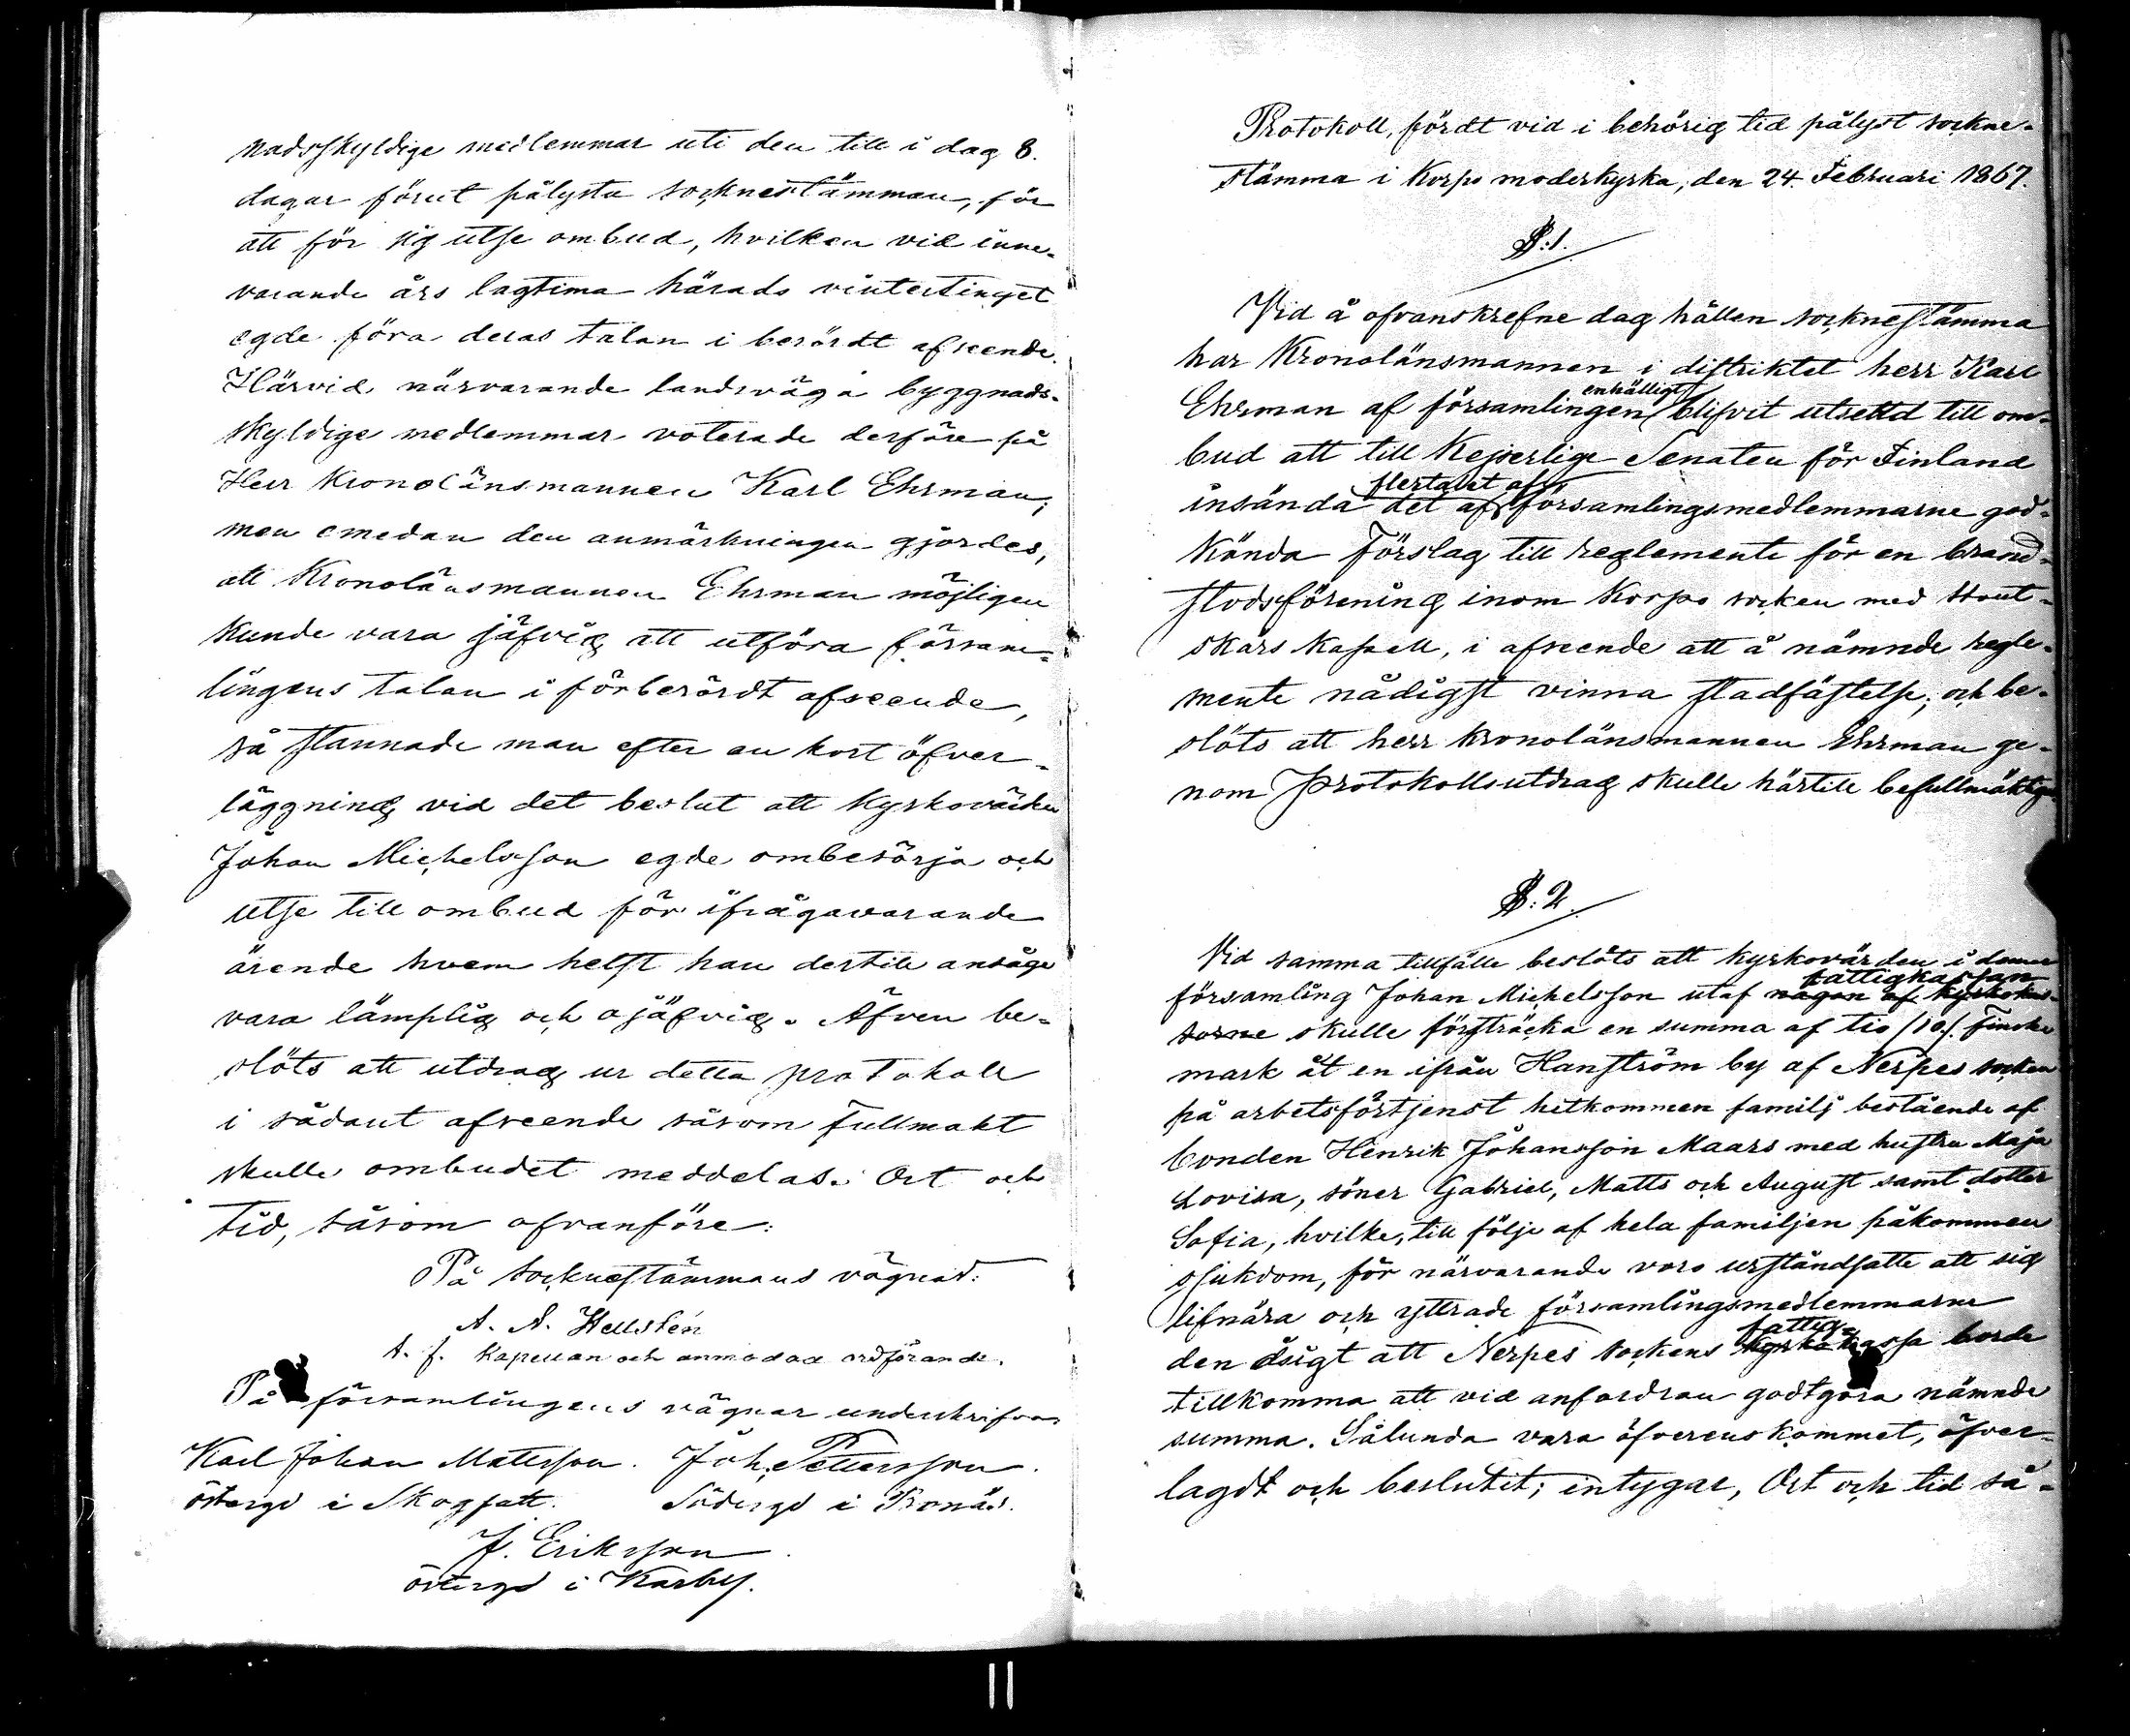 nadsskyldige medlemmar uti den till i dag 8.
dagar förut pålysta socknestämman, för
att för sig utse ombud, hvilken vid inne-
varande års lagtima härads vintertinget
egde föra deras talan i berördt afseende.
Härvid närvarande landsväga byggnads-
skyldige medlemmar voterade derföre på
Herr Kronolänsmannen Karl Ehrman;
men emedan den anmärkningen gjordes,
att Kronolänsmannen Ehrman möjligen
kunde vara jäfvig att utföra försam-
lingens talan i förberördt afseende,
så stannade man efter en kort öfver-
läggning vid det beslut att Kyrkovärden
Johan Michelsson egde ombesörja och
utse till ombud för ifrågavarande
ärende hvem helst han dertill ansåge
vara lämplig och ojäfvig. Äfven be-
slöts att utdrag ur detta protokoll
i sådant afseende såsom fullmakt
skulle ombudet meddelas. Ort och
tid, såsom ofvanföre:
På Socknestämmans vägnar:
A. N. Hellstén
t. f. Kapellan och anmodad ordförande.
På församlingens vägnar underskrifva
Karl Johan Mattsson. Joh. Pettersson.
östergd i Skogsatt. Södergd i Kronäs.
J. Eriksson
östergd i Karby.
Protokoll, fördt vid i behörig tid pålyst sockne-
stämma i Korpo moderkyrka, den 24. Februari 1867.
§:1.
Vid å ofvanskrefne dag hållen socknestämma
har Kronolänsmannen i distriktet herr Karl
enhälligt
Ehrman af församlingen blifvit utsedd till om-
bud att till Kejserlige Senaten för Finland
flertalet af
insända det af församlingsmedlemmarne god-
kända Förslag till reglemente för en brand-
stodsförening inom Korpo socken med Hout-
skärs Kapell, i afseende att å nämnde regle-
mente nådigst vinna stadfästelse; och be-
slöts att herr kronolänsmannen Ehrman ge-
nom protokollsutdrag skulle härtill befullmäktigas
§. 2.
Vid samma tillfälle beslöts att kyrkovärden i denna
fattigkassan
församling Johan Michelsson utaf någon af kyrkokas-
sorne skulle försträcka en summa af tio /10/. Finska
mark åt en ifrån Hanström by af Nerpes socken
på arbetsförtjenst hitkommen familj bestående af
bonden Henrik Johansson Maars med hustru Maja
Lovisa, söner Gabriel, Matts och August samt dotter
Sofia, hvilke, till följe af hela familjen påkommen
sjukdom, för närvarande voro urståndsatte att sig
lifnära och yttrade församlingsmedlemmarne
fattig-
den åsigt att Nerpes sockens kyrko kassa borde
tillkomma att vid anfordran godtgöra nämnde
summa. Sålunda vara öfverenskommet, öfver-
lagdt och beslutit; intygar, Ort och tid så-